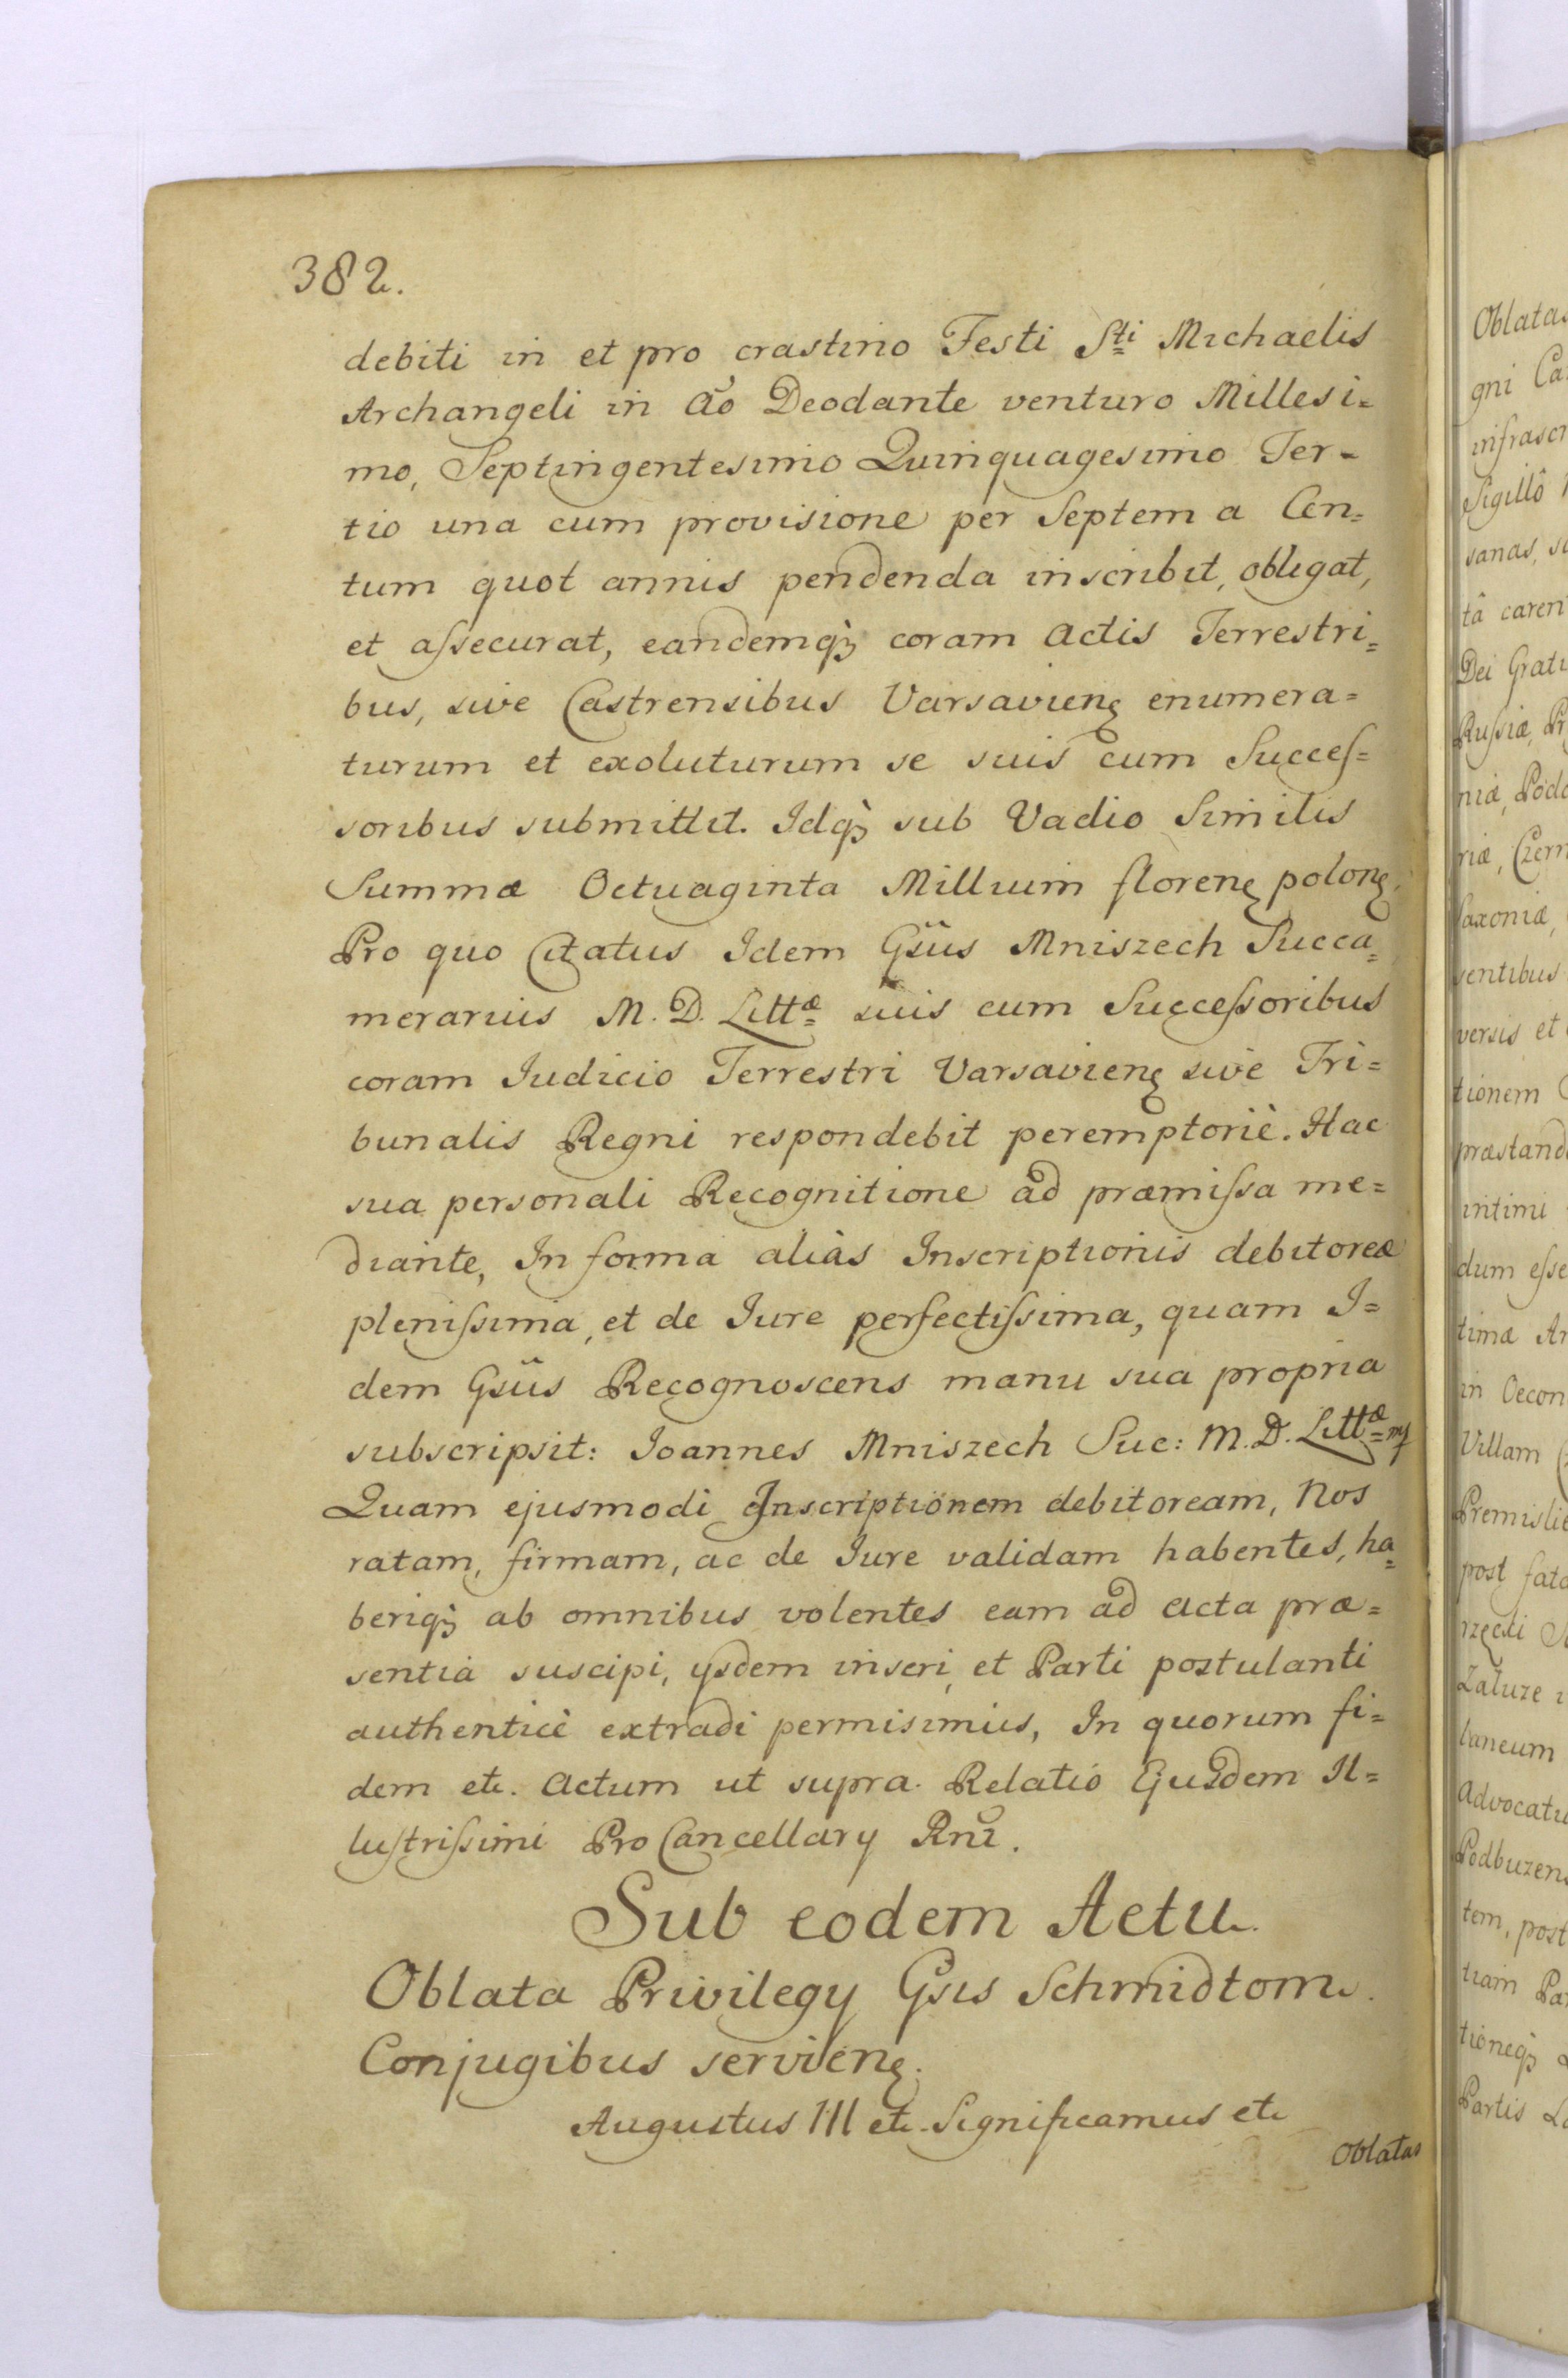 382.
debiti in et pro crastino Festi Sti Michaelis
Archangeli in Ao Deodante venturo Millesi=
mo, Septingentesimo Quinquagesimo Ter=
tio una cum provisione per Septem a Cen=
tum quot annis pendenda inscribit, obligat,
et aſsecurat, eandemqꝫ coram Actis Terrestri=
bus, sive Castrensibus Varsavienę enumera=
turum et exoluturum se suis cum Succeſ=
soribus submittit. Idqꝫ sub Vadio Similis
Summæ Octuaginta Millium florenę polonę.
Pro quo Citatus Idem Gsus Mniszech Succa=
merarius M. D. Littæ suis cum Succeſsoribus
coram Iudicio Terrestri Varsavienę sive Tri=
bunalis Regni respondebit peremptoriè. Hac
sua personali Recognitione ad præmiſsa me=
diante, In forma aliàs Inscriptionis debitoreæ
pleniſsima, et de Iure perfectiſsima, quam I=
dem Gsus Recognoscens manu sua propria
subscripsit: Ioannes Mniszech Suc: M. D. Littæ mp
Quam ejusmodi Inscriptionem debitoream, Nos
ratam, firmam, ac de Iure validam habentes, ha=
beriqꝫ ab omnibus volentes eam ad Acta præ=
sentia suscipi, ysdem inseri, et Parti postulanti
authenticè extradi permisimus, In quorum fi=
dem etc. Actum ut supra. Relatio Ejusdem Il=
luſtriſsimi Pro Cancellary Rni.
Sub eodem Actu
Oblata Privilegy Gsis Schmidtom.
Conjugibus servienę.
Augustus III etc. Significamus etc
Oblatas
Oblatas
gni
infrascr
Sigillô
sanas,
tâ caren
Dei Grati
Ruſsiæ,
niæ,
riæ,
Saxoniæ,
sentibus
versis et
tionem
præstand
intimi
dum eſse
timæ
in Oecon
Villam
Premislie
post fata
Załuze
laneum
Advocatu
Podbuzens
tem, post
tiam
tioneqꝫ
Partis